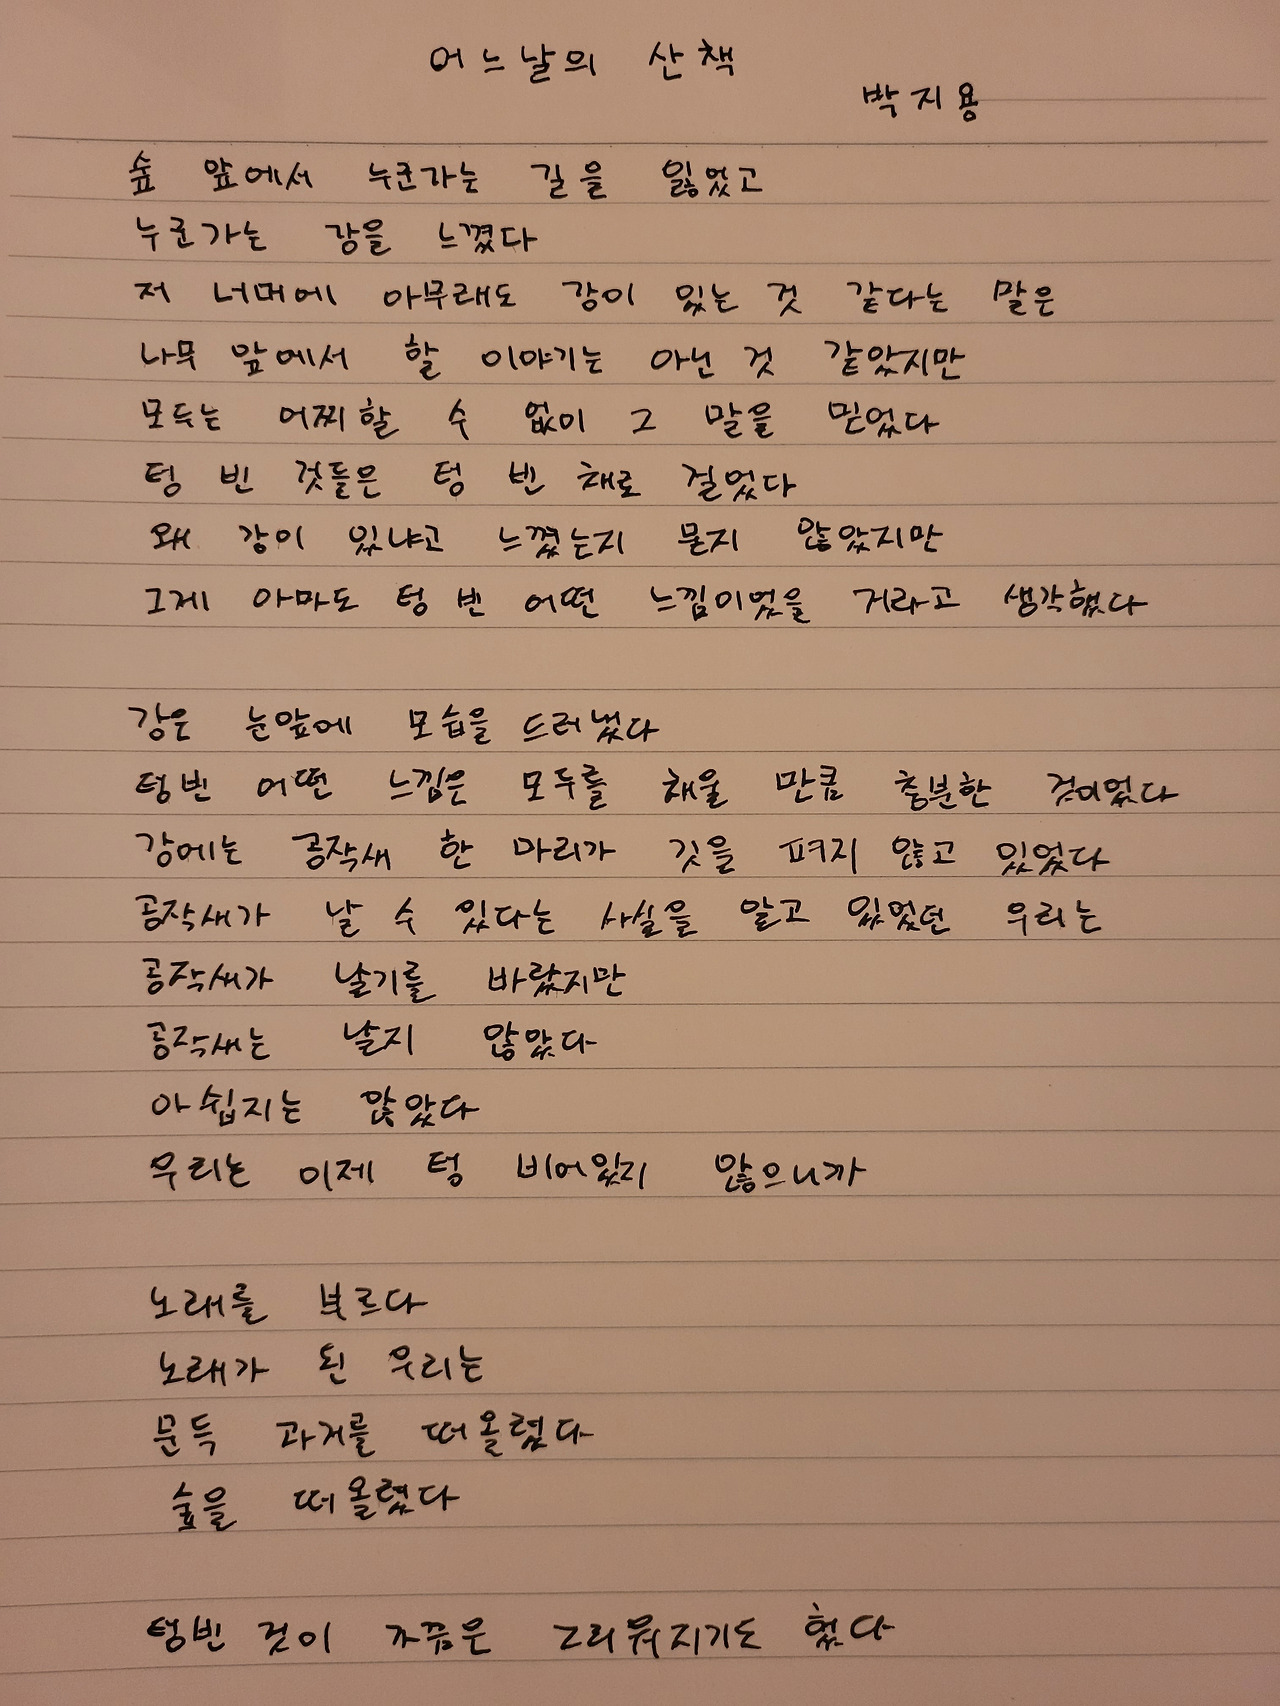 어느날의 산책
박지용
숲 앞에서 누군가는 길을 잃었고
누군가는 강을 느꼈다
저 너머에 아무래도 강이 있는 것 같다는 말은
나무 앞에서 할 이야기는 아닌 것 같았지만
모두는 어찌할 수 없이 그 말을 믿었다
텅 빈 것들은 텅 빈 채로 걸었다
왜 강이 있냐고 느꼈는지 묻지 않았지만
그게 아마도 텅 빈 어떤 느낌이었을 거라고 생각했다
강은 눈앞에 모습을 드러냈다
텅빈 어떤 느낌은 모두를 채울 만큼 충분한 것이었다
강에는 공작새 한 마리가 깃을 펴지 않고 있었다
공작새가 날 수 있다는 사실을 알고 있었던 우리는
공작새가 날기를 바랐지만
공작새는 날지 않았다
아쉽지는 않았다
우리는 이제 텅 비어있지 않으니까
노래를 부르다
노래가 된 우리는
문득 과거를 떠올렸다
숲을 떠올렸다
텅빈 것이 가끔은 그리워지기도 했다